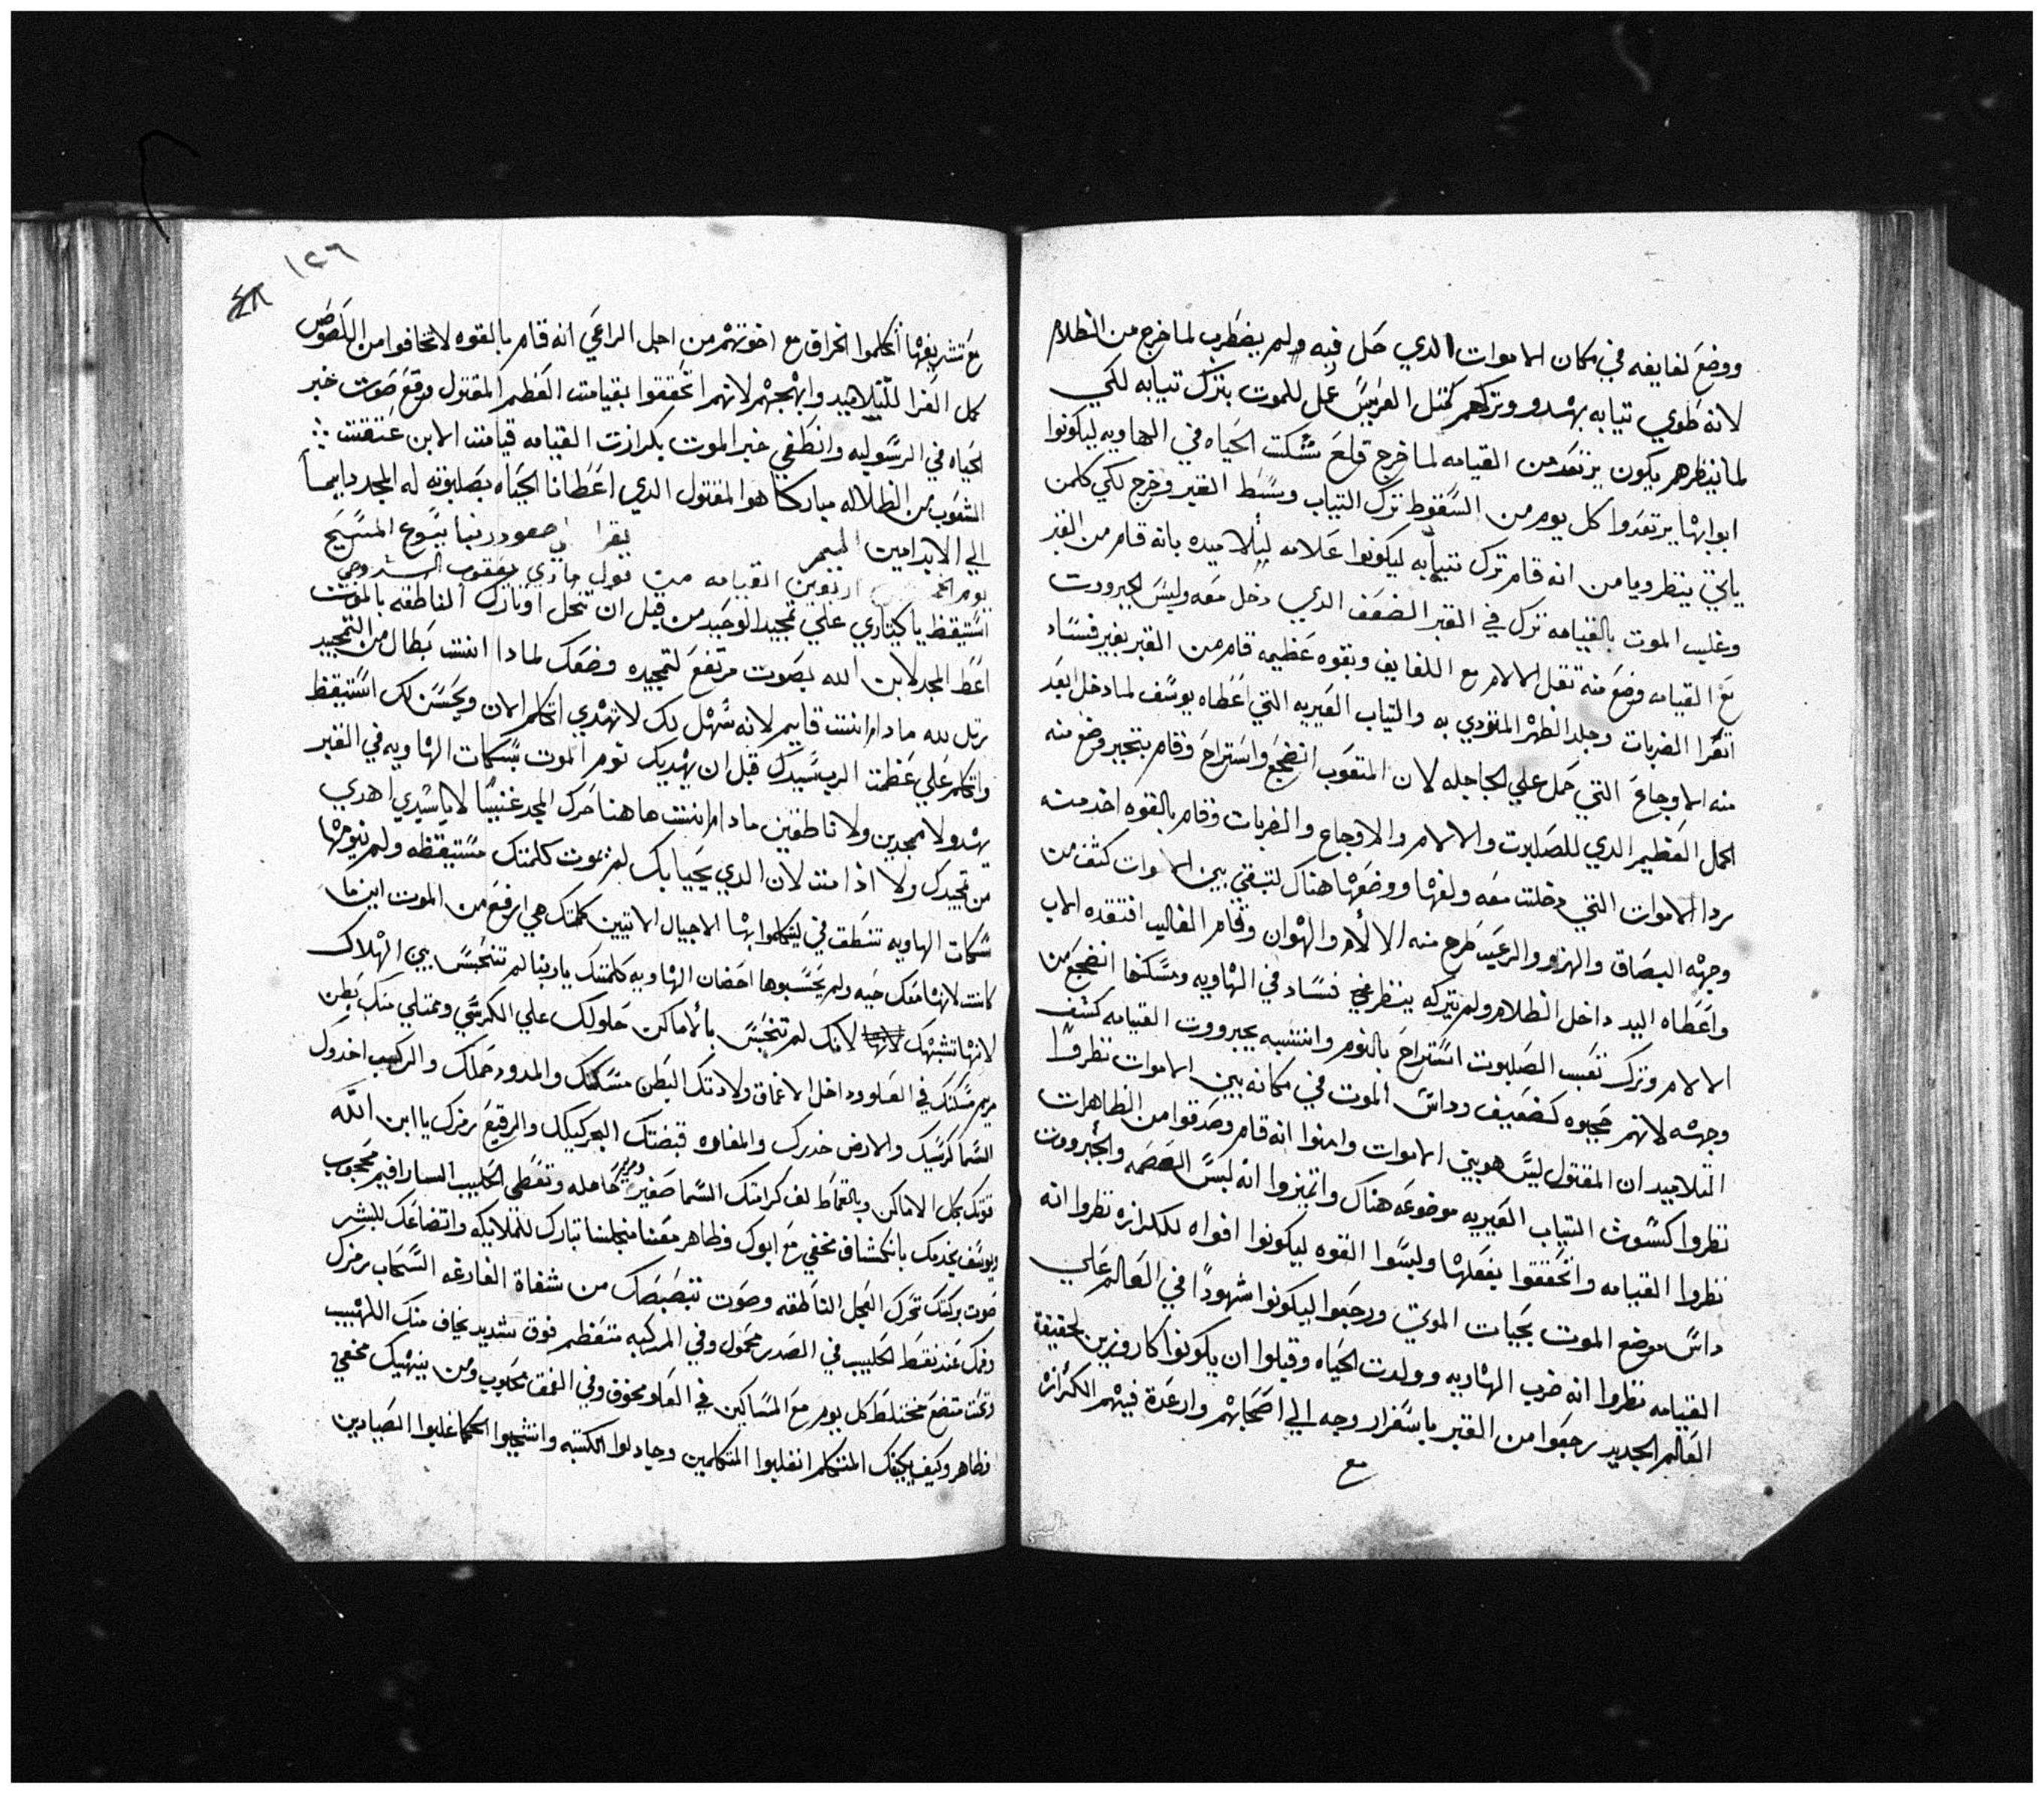 ووضع لفايفه في مكان الاموات الدي حل فيه ولم يضطرب لما خرج من الظلام
لانه طوي تيابه بهدو وتركهم كمتل العريس علي للموت بترك تيابه لكي
لما ينظرهم يكون يرتعد من القيامه لما خرج قلع شكت الحياه في الهاويه ليكونوا
ابوابها يرتعدوا كل يوم من السقوط ترك التياب وسط الغير وخرج لكي كلمن
ياتي ينظر ويامن انه قام ترك تيابه ليكونوا علامه لتلاميده بانه قام من القبر
وغلب الموت بالقيامه ترك في القبر الضعف الدي دخل معه ولبس الجبروت
مع القيامه وضع منه تقل الالام مع اللفايف وبقوه عظيمه قام من القبر بغير فساد
الضربات وجلد الظهر المتودي به والتياب العيريه التي اعطاه يوسف لما دخل ابعد
منه الاوجاع التي حمل علي الجاجله لان المتعوب انضجع واستراح وقام بتجبر وضع منه
الحمل العظيم الدي للصلبوت والالام والاوجاع والضربات وقام بالقوه اخد منه
ردا الاموات التي دخلت معه ولفها ووضعها هناك لتبقي بين الاموات كشف من
وجهه البصاق والهزو والرعيد طرح منه الالام والهوان وقام الغالب افتقده الاب
واعطاه اليد داخل الظلام ولم يتركه ينظر فساد في الهاويه ومسكنها انضجع من
الالام وترك تعب الصلبوت استراح بالنوم وانتبه بجبروت القيامه كشف
وجهه لانهم حجبوه كضعيف وداس الموت في مكانه بين الاموات نظروا
التلاميد ان المقتول ليس هو بين الاموات وامنوا انه قام وصدقوا من الظاهرات
نظروا كسوت التياب العيريه موضوعه هناك واتميزوا انه لبس العصمه والجبروت
نظروا القيامه واتحققوا بفعلها ولبسوا القوه ليكونوا افواه للكرازه نظروا انه
داس موضع الموت بحيات الموتي ورجعوا ليكونوا شهودًا في العالم علي
القيامه نظروا انه خرب الهاويه وولدت الحياه وقبلوا ان يكونوا كاروزين لحقيقة
العالم الجديد رجعوا من القبر باسفرار وجه الي اصحابهم وارعدة فيهم الكرازه
مع
١٢٦
مع تشريفها اتكلموا الخراف مع اخوتهم من اجل الراعي انه قام بالقوه لا تخافوا من اللصوص
كمل العزا للتلاميد وابهجهم لانهم اتحققوا بقيامت العظيم المقتول وقع صوت خبر
الحياه في الرسوليه وانطفي خبر الموت بكرازت القيامه قيامت الابن عتقت
الشعوب من الظلاله مبارك هو المقتول الدي اعطانا الحياه بصلبوته له المجد دايمًا
الي الابد امين الميمر يقرا في صعود ربنا يسوع المسيح
يوم اربعين القيامه من قول ماري يعقوب السروجي
استيقظ يا كيتاري علي تمجيد الوحيد من قبل ان تنحل اوتارك الناطقه بالموت
اعط المجد لابن الله بصوت مرتفع لتمجيده وضعك لمادا انت بطال من التمجيد
رتل لله ما دام انت قايم لانه سهل بك لا تهدي اتكلم الان ويحسن لك استيقظ
واتكلم علي عظمت الرب سيدك قبل ان يهديك نوم الموت بسكات الهاويه في القبر
يهدو لا ممجدين ولا ناطقين ما دام انت هاهنا حرك المجد غنيبًا لا يا سيدي اهدي
من تمجيدك ولا اذا مت لان الدي يحيا بك لم تموت كلمتك مستيقظه ولم ينومها
سكات الهاويه تنطق في ليتكلموا بها الاجيال الاتيين كلمتك هي ارفع من الموت اين ما
كانت لانها معك حيه ولم يحسبوها احضان الهاويه كلمتك يا ربنا لم تنحبس بين الهلاك
لانها تشبهك لانك لم تنحبس بالاماكن حلولك علي الكرسي وممتلي منك بطن
مريم مسكنك في العلو وداخل الاعماق ولادتك البطن مسكنك والمدود حملك والمركب اخدوك
السما كرسيك والارض خدرك والمغاره قبضتك البحر كيلك والرقيع رمزك يا ابن الله
قوتك بكل الاماكن وبالقماط لف كرامتك السما صغيره ومريم حامله وتغطي الحليب السارافيم محجوب
ويوسف يخدمك بانكشاف مخفي مع ابوك وظاهر معنا منجلنا تبارك للملايكه واتضاعك للبشر
صوت بركتك تحرك العجل الناطقه وصوت تبصبصك من شفاة الفارغه السحاب رمزك
وفمك عند نقط الحليب في الصدر محمول وفي المركبه متعظم فوق شديد يخاف منك اللهيب
وتحت متضع مختلط كل يوم مع المساكين في العلو مخوف وفي العمق محبوب ومن بينهيك مخفي
ظاهر وكيف يكيفك المتكلم انغلبوا المتكلمين وجادلوا الكتبه وانتجبوا الحكما غلبوا الصيادين